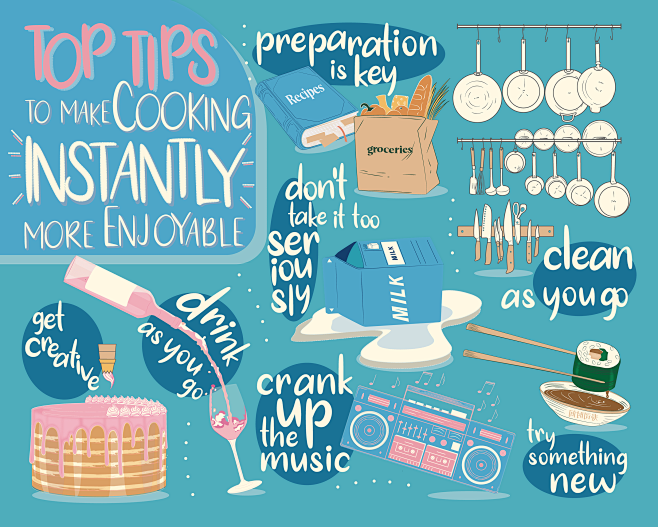 TOP TIPS
TO MAKE COOKING
INSTANTLY
MORE ENJOYABLE
preparation
is key
Recipes
groceries
don't
take it too
ser
iou
sly
MILK
MILK
clean
as you go
get
creative
drink
as you
go
crank
up
the
music
try
something
new